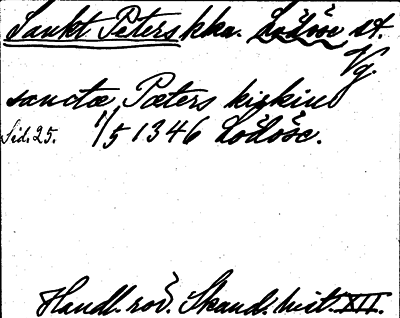 Sankt Peters kka. Lödöse st.
Vg.
sanctæ Pæters kirkiu
Sid. 25. 1/5 1346 Lödöse.
Handl. rör. Skand. hist. XII.